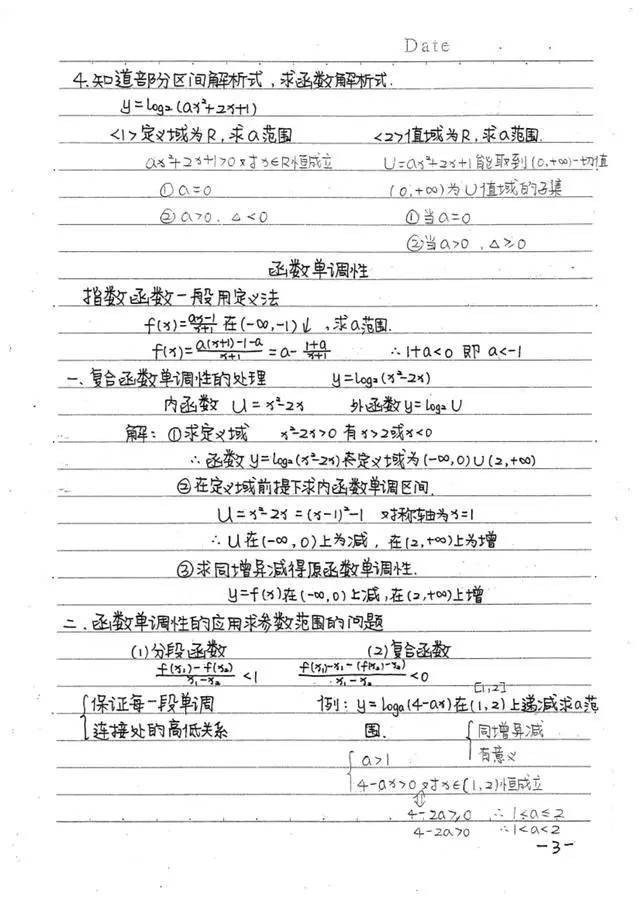 Date
4.知道部分区间解析式，求函数解析式.
y=log₂(ax²+2x+1)
<1>定义域为R，求a范围 <2>值域为R，求a范围.
ax²+2x+1>0对x∈R恒成立 U=ax²+2x+1能取到(0,+∞)一切值
①a=0 (0,+∞)为U值域的子集
②a>0. △<0 ①当a=0
②当a>0，△≥0
函数单调性
指数函数一般用定义法
f(x)=(ax-1)/(x+1) 在(-∞,-1)↓，求a范围.
f(x)=(a(x+1)-1-a)/(x+1)=a-(1+a)/(x+1) ∴1+a<0 即 a<-1
一.复合函数单调性的处理 y=log₂(x²-2x)
内函数 U=x²-2x 外函数y=log₂U
解：①求定义域 x²-2x>0 有x>2或x<0
∴函数y=log₂(x²-2x)定义域为(-∞,0)∪(2,+∞)
②在定义域前提下求内函数单调区间.
U=x²-2x=(x-1)²-1 对称轴为x=1
∴U在(-∞,0)上为减，在(2,+∞)上为增
③求同增异减得原函数单调性.
y=f(x)在(-∞,0)上减,在(2,+∞)上增
二.函数单调性的应用求参数范围的问题
(1)分段函数 (2)复合函数
(f(x₁)-f(x₂))/(x₁-x₂)<1 (f(x₁)-x₁-(f(x₂)-x₂))/(x₁-x₂)<0
[1,2]
{保证每一段单调 例：y=logₐ(4-ax)在(1,2)上递减求a范
连接处的高低关系 围. {同增异减
有意义
{a>1
4-ax>0对x∈(1,2)恒成立
⇕
4-2a≥0 ∴1<a≤2
4-2a>0 ∴1<a<2
-3-